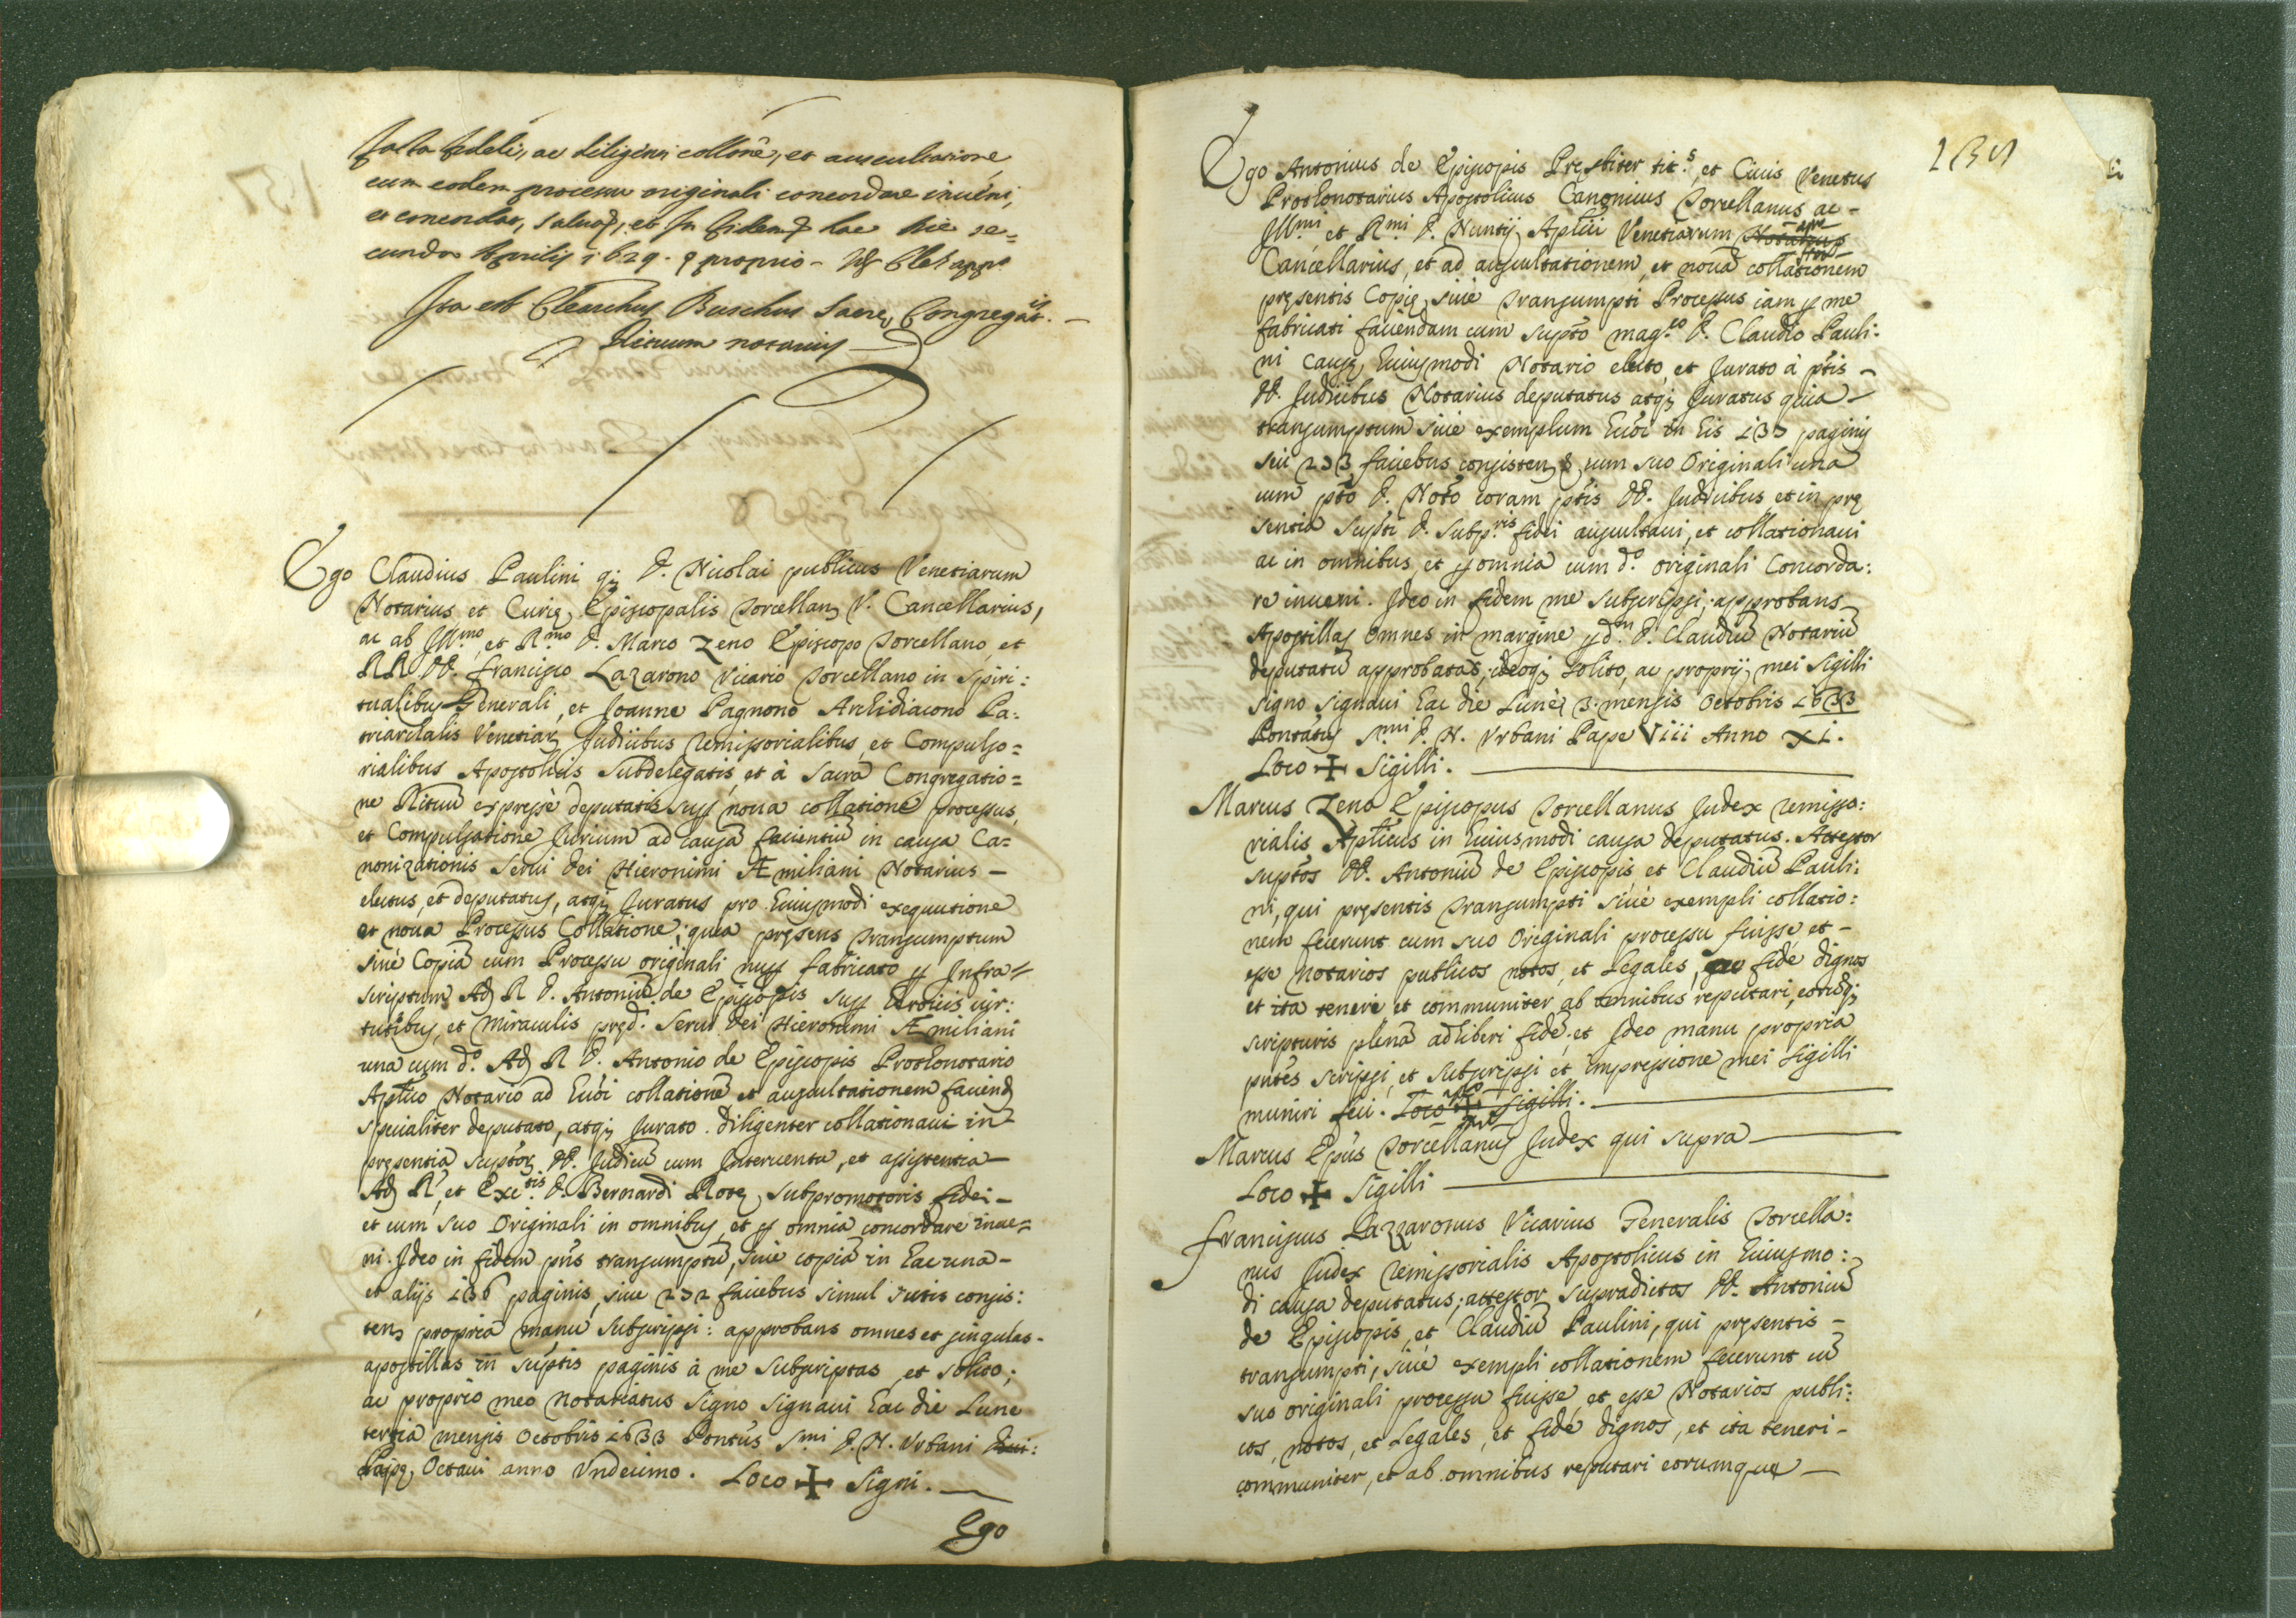 facta fideli, ac diligenti collōne, et auscultatione
cum eodem processu originali concordare inueni,
et concordat, saluo &, et In fidem & hac die se=
cunda Aprilis 1629. & proprio - 
Ita est Clearchus Buschus Sacrę Congregat.is -
Rituum notarius
Ego Claudius Paulini qȝ D. Nicolai publicus Venetiarum
Notarius et Curię Episcopalis Torcellanę V. Cancellarius,
ac ab Ill.mo et R.mo D. Marco Zeno Episcopo Torcellano, et
RR. DD. Francisco Lazarono Vicario Torcellano in Spiri:
tualibus Generali, et Joanne Pagnono Archidiacono Pa:
triarchalis Venetiar. Judicibus remissorialibus et Compulso=
rialibus Apostolicis subdelegatis, et à sacra Congregatio=
ne Rituū expressè deputatis sup noua collatione processus,
et Compulsatione Jurium ad causā facientiū in causa Ca=
nonizationis serui Dei Hieronimi Æmiliani Notarius -
electus, et deputatus, atqȝ Juratus pro huiusmodi exequutione
et noua Processus Collatione; quia pręsens Transumptum
siue Copiā cum Processu originali nup fabricato p Infra=
scriptum Ad. R D. Antoniū de Episcopis sup heroicis uir:
tutibus, et miraculis pręd.i Serui Dei Hieronimi Æmiliani
una cum d.o Ad. R D. Antonio de Episcopis Prothonotario
Aplico Notario ad huōi collationē et auscultationem faciend.
specialiter deputato, atqȝ Jurato. diligenter collationaui in
pręsentia supt̄or. DD. Judicū cum Interuentu, et assistentia
Ad. R., et Exc.tis D. Bernardi Rotę subpromotoris fidei -
et cum suo Originali in omnibus, et p omnia concordare inue=
ni. Ideo in fidem pn̄s transumptū, siue copiā in hac una -
et alijs 136 paginis, siue 232 faciebus simul iutis consis:
tens propria manu subscripsi: approbans omnes et singulas -
apostillas in sup̄tis paginis à me subscriptas, et solito;
ac proprio meo notariatus signo signaui hac die Lune
tertia mensis Octobris 1633 Pontūs S.mi D. N. Vrbani diui:
Papę Octaui anno Vndecimo. Loco ✠ signi.
Ego
Ego Antonius de Episcopis Presbiter tit.s, et Ciuis Venetus
Prothonotarius Apostolicus Canonicus Torcellanus ac -
Ill.mi et R.mi D. Nuntij Aplici Venetiarum
Cancellarius, et ad auscultationem, et nouā collationem
pręsentis Copię, siue Transumpti Processus iam p me
fabricati faciendam cum sup̄to mag.co D. Claudio Pauli:
ni causę huiusmodi Notario electo, et Jurato à p̄tis -
DD. Judicibus Notarius deputatus atqȝ Juratus quia -
transumptum siue exemplum huōi in his 137 paginis
seu 233 faciebus consistens & cum suo Originali una
cum p̄to D. Not̄o coram p̄tis DD. Judicibus et in prę
sentia sup̄ti D. Subp.ris fidei auscultaui, et collationaui
ac in omnibus, et p omnia cum d.o originali Concorda:
re inueni. Ideo in fidem me subscripsi; approbans
Apostillas omnes in margine p d.m D. Claudiū Notariū
deputatū approbatas; ideoqȝ solito, ac proprij mei sigilli
signo signaui hac die Lunę 3. mensis Octobris 1633
Pontātus S.mi D. N. Vrbani Pape Viii Anno XI.
Loco ✠ Sigilli.
Marcus Zeno Episcopus Torcellanus Judex remisso:
rialis Aplicus in huiusmodi causa deputatus. Attestor
sup̄tos DD. Antoniū de Episcopis et Claudiū Pauli:
ni, qui pręsentis Transumpti siue exempli collatio:
nem fecerunt cum suo Originali processu fuisse, et -
esse notarios publicos notos, et Legales, fide dignos
et ita teneri et communiter ab omnibus reputari, eorūdqȝ
scripturis plenā adhiberi fidē; et Ideo manu propria
pn̄tes scripsi, et subscripsi et impressione mei sigilli
muniri feci. Loco ✠ Sigilli.
Marcus Epūs Torcellanus Judex qui supra
Loco ✠ Sigilli
Franciscus Lazzaronus Vicarius Generalis Torcella:
nus Judex remissorialis Apostolicus in huiusmo:
di causa deputatus; attestor supradictos DD. Antoniū
de Episcopis, et Claudiū Paulini, qui pręsentis -
transumpti, siue exempli collationem fecerunt cū
suo originali processu fuisse, et esse Notarios publi:
cos, notos, et Legales, et fide dignos, et ita teneri -
communiter, et ab omnibus reputari eorumque